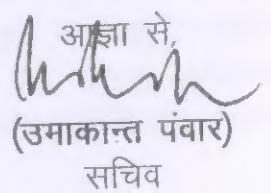 आज्ञा से,
(उमाकान्त पंवार)
सचिव